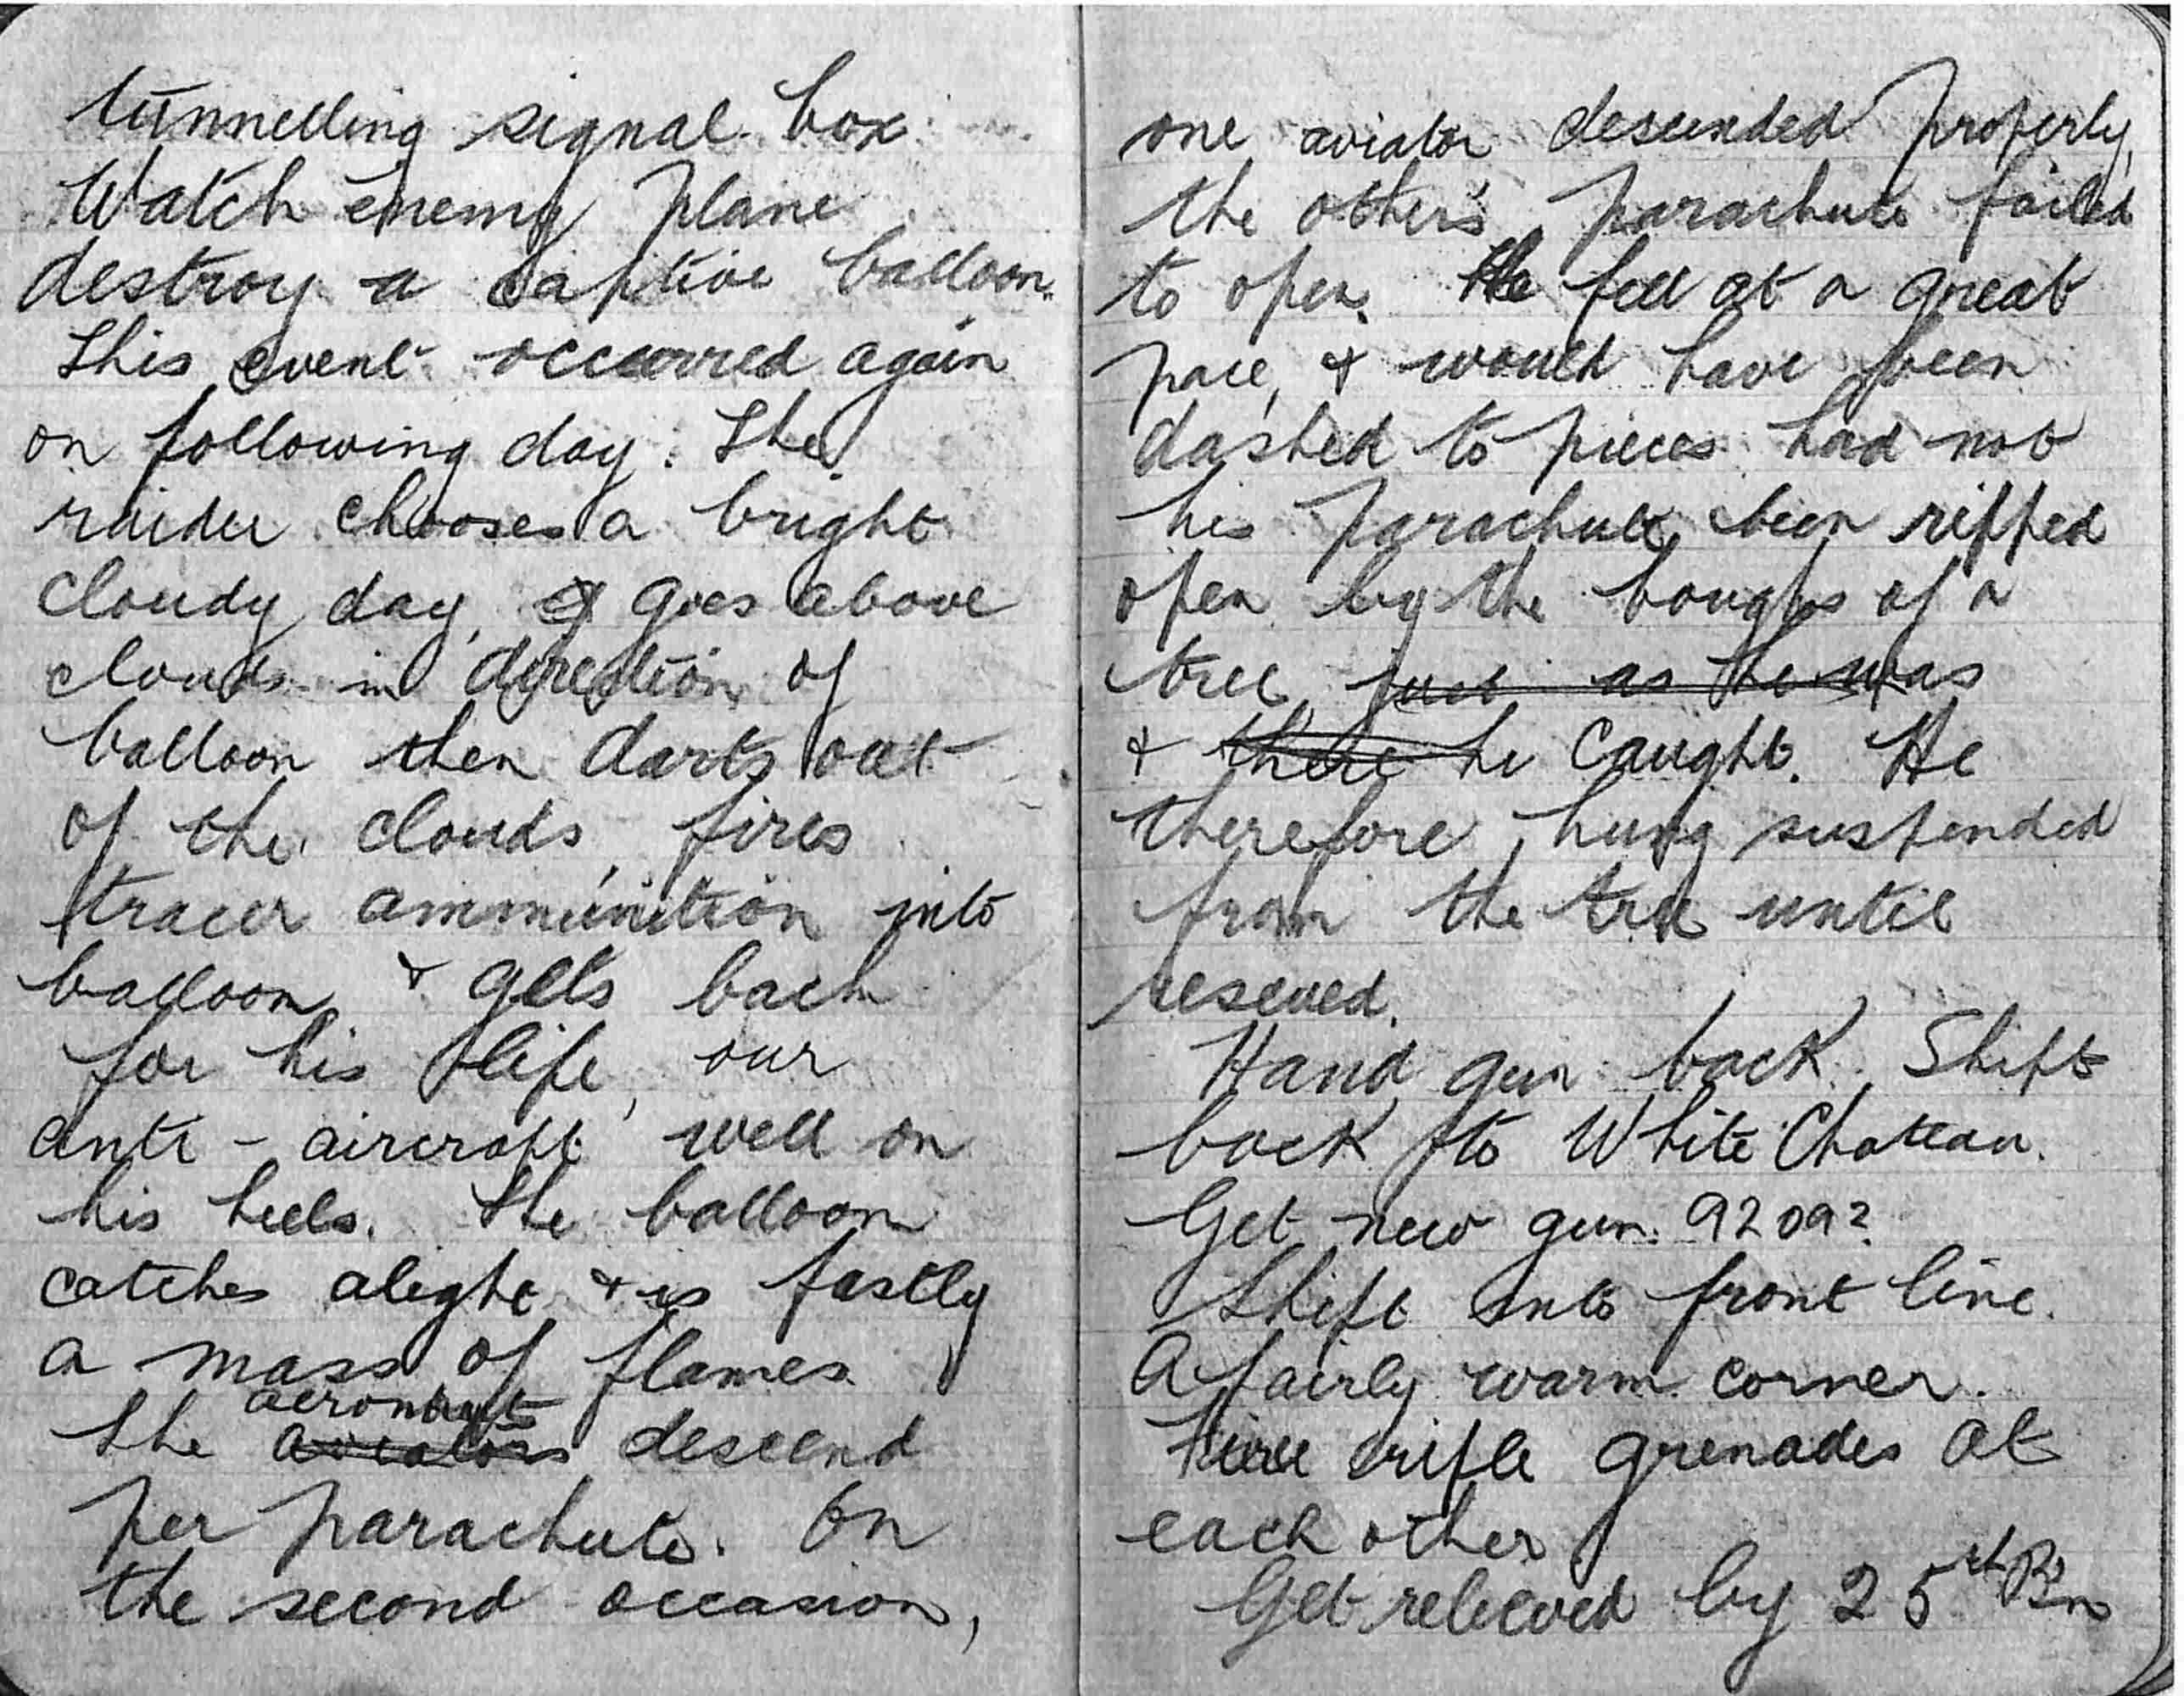 tunnelling signal box
Watch enemy plane
destroy a captive balloon.
This event occurred again
on following day. The
raider chooses a bright
cloudy day, & goes above
clouds in direction of
balloon then darts out
of the clouds, fires
tracer ammunition into
balloon & gets back
for his life, our
anti-aircraft well on
his heels. The balloon
catches alight & is fastly
a mass of flames.
aeronauts
The aviators descend
per parachute. On
the second occasion,
one aviator descended properly,
the other's parachute failed
to open. He fell at a great
pace, & would have been
dashed to pieces had not
his parachute been ripped
open by the boughs of a
tree, just as he was
& there he caught. He
therefore hung suspended
from the tree until
rescued.
Hand gun back. Shift
back to White Chateau.
Get new gun. 92092
Shift into front line.
A fairly warm corner.
Fire rifle grenades at
each other
Get relieved by 25th Bn